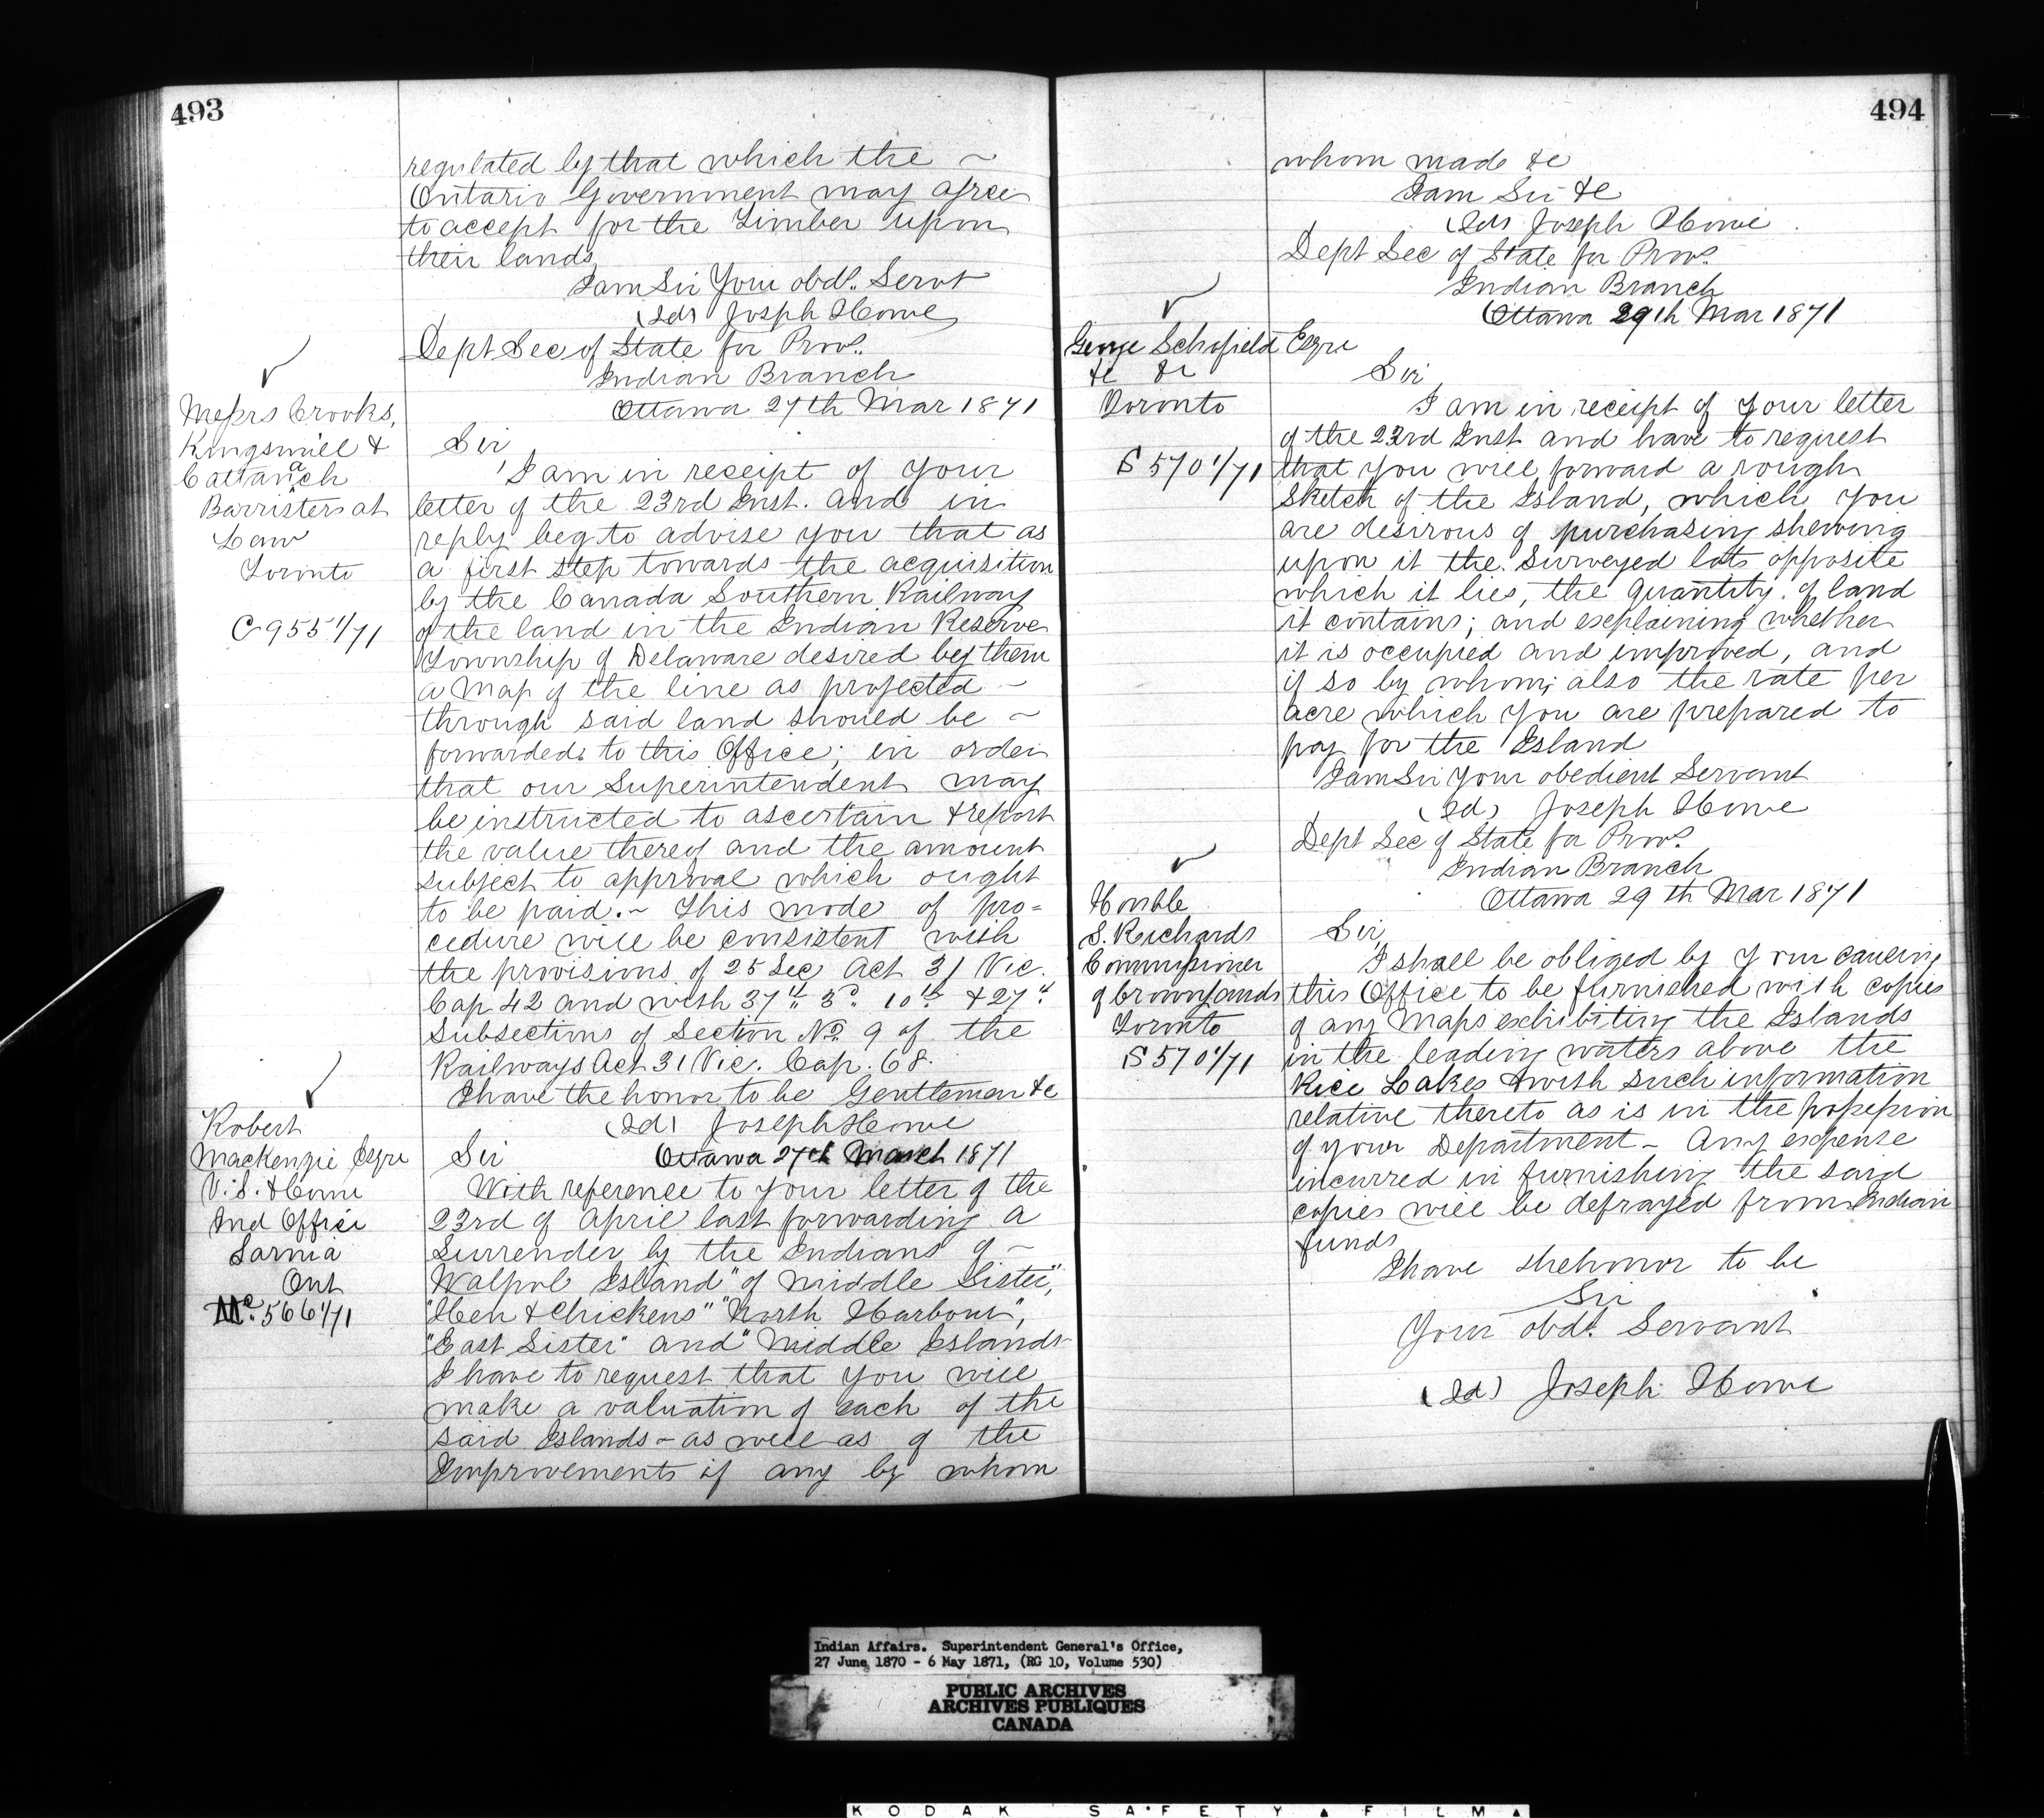 493
regulated by that which the ~
Ontario Government may agree
to accept for the Timber upon
their lands
I am Sir Your obdt. Servt
(Sd) Joseph Howe
Dept Sec of State for Provs.
Indian Branch
Ottawa 27th Mar 1871
Messrs Crooks,
Kingsmill &
Cattanach
Barristers at
Law
Toronto
C 955 1/71
Sir
I am in receipt of your
letter of the 23rd Inst. and in
reply beg to advise you that as
a first step towards the acquisition
by the Canada Southern Railway
of the land in the Indian Reserve
Township of Delaware desired by them
a map of the line as projected ~
through said land should be ~
forwarded to this Office; in order
that our Superintendent may
be instructed to ascertain & report
the value thereof and the amount
subject to approval which ought
to be paid. ~ This mode of pro=
cedure will be consistent with
the provisions of 25 Sec Act 31 Vic.
Cap 42 and with 37th 3d 10th & 27th
Subsections of Section No. 9 of the
Railways Act 31 Vic. Cap. 68.
I have the honor to be Gentlemen &c
(Sd) Joseph Howe
Robert
Mackenzie Esqre
V. S. & Comr
Ind Office
Sarnia
Ont
Mc. 566 1/71
Sir Ottawa 27th March 1871
With reference to your letter of the
23rd of April last forwarding a
Surrender by the Indians of ~
Walpol Island "of Middle Sister",
"Hen & Chickens" "North Harbour",
"East Sister" and "Middle Islands
I have to request that you will
make a valuation of each of the
said Islands - as well as of the
Improvements if any by whom
494
whom made &c
I am Sir &c
(Sd) Joseph Howe
Dept Sec of State for Provs.
Indian Branch
Ottawa 29th Mar 1871
George Schofield Esqre
&c &c
Toronto
S 570 1/71
Sir
I am in receipt of your letter
of the 23rd Inst and have to request
that you will forward a rough
Sketch of the Island, which you
are desirous of purchasing shewing
upon it the Surveyed lots opposite
which it lies, the quantity of land
it contains; and explaining whether
it is occupied and improved, and
if so by whom; also the rate per
acre which you are prepared to
pay for the Island
I am Sir Your obedient Servant
(Sd) Joseph Howe
Dept Sec of State for Provs.
Indian Branch
Ottawa 29th Mar 1871
Honble
S. Richards
Commissioner
of Crown Lands
Toronto
S 570 1/71
Sir,
I shall be obliged by your causing
this Office to be furnished with copies
of any Maps exhibiting the Islands
in the leading waters above the
Rice Lakes & with such information
relative thereto as is in the possession
of your Department - Any expense
incurred in furnishing the said
copies will be defrayed from Indian
funds
I have the honor to be
Sir
Your obdt. Servant
(Sd) Joseph Howe
Indian Affairs. Superintendent General's Office,
27 June 1870 - 6 May 1871, (RG 10, Volume 530)
PUBLIC ARCHIVES
ARCHIVES PUBLIQUES
CANADA
KODAK SAFETY FILM